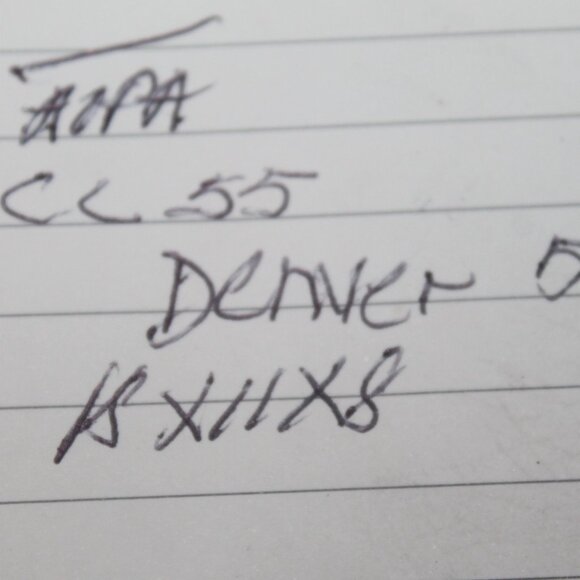 AOPA
CC 55
Denver 5
18 X 11 X 8